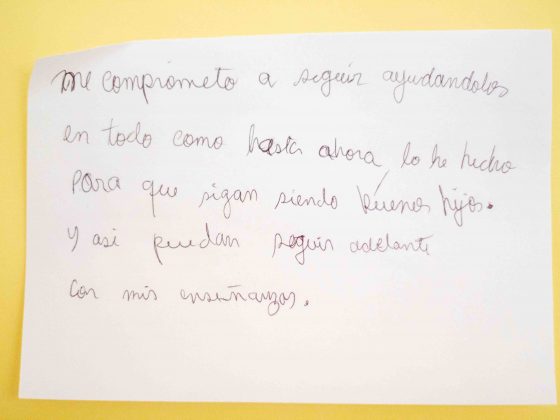 Me comprometo a seguir ayudandolos
en todo como hasta ahora, lo he hecho
para que sigan siendo buenos hijos.
Y asi puedan seguir adelante
con mis enseñanzas.